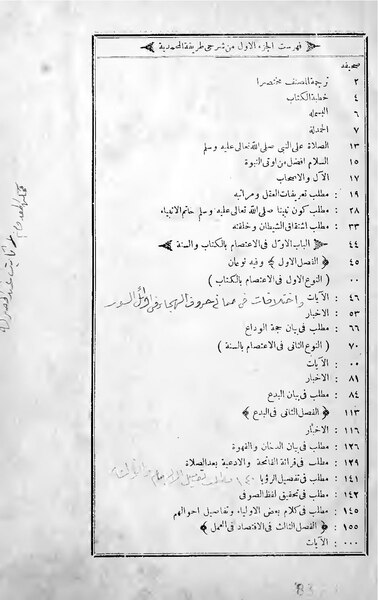 فهرست الجزء الاول من شرحى طريقة المحمدية
صحيفه
٢ ترجمة المصنف مختصرا
٤ خطبة الكتاب
٦ البسمله
٧ الحمدلة
١٣ الصلاة على النبى صلى الله تعالى عليه وسلم
١٥ السلام افضل من اوتى النبوة
١٧ الآل والاصحاب
١٩ : مطلب تعريفات العقل ومراتبه
٢٨ : مطلب كون نبينا صلى الله تعالى عليه وسلم خاتم الانبياء
٣٣ : مطلب اشتقاق الشيطان وخلقته
٤٤ الباب الاول فى الاعتصام بالكتاب والسنة
٤٥ ﴿ الفصل الاول ﴾ وفيه نوعان
٠٠ ( النوع الاول فى الاعتصام بالكتاب )
٤٦ : الآيات واختلافات فى معانى حروف الهجاء فى اوائل السور
٥٣ : الاخبار
٦٦ : مطلب فى بيان حجة الوداع
٧٠ ( النوع الثانى فى الاعتصام بالسنة )
٠٠ : الآيات
٨١ : الاخبار
٨٤ : مطلب فى بيان البدع
١١٣ ﴿ الفصل الثانى فى البدع ﴾
١١٦ : الاخبار
١٢٦ : مطلب فى بيان الدخان والقهوة
١٢٩ : مطلب فى قرائة الفاتحة والادعية بعد الصلاة
١٤١ : مطلب فى تفصيل الرؤيا ١٤٠
١٤٢ : مطلب فى تحقيق لفظ الصوفى
١٤٥ : مطلب فى كلام بعض الاولياء وتفاصيل احوالهم
١٥٥ ﴿ الفصل الثالث فى الاقتصاد فى العمل ﴾
٠٠٠ : الآيات